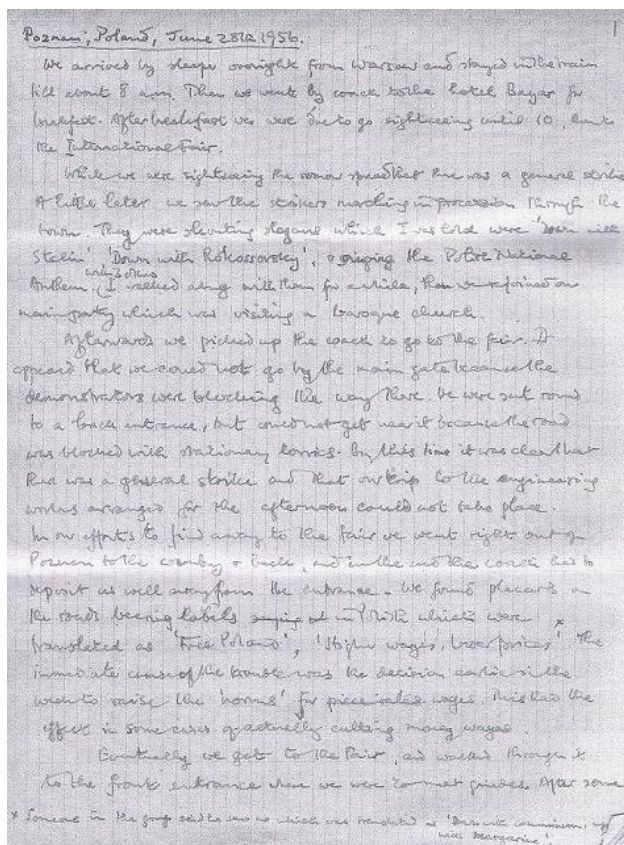 1
Poznan, Poland, June 28th 1956.
We arrived by sleeper overnight from Warsaw and stayed in the train
till about 8 a.m. Then we went by coach to the hotel Bazar for
breakfast. After breakfast we were due to go sightseeing until 10, then to
the International Fair.
While we were sightseeing the rumour spread that there was a general strike
A little later we saw the strikers marching in procession through the
town. They were shouting slogans which I was told were 'Down with
Stalin' 'Down with Rokossovsky', & singing the Polish National
with 3 others
Anthem. I walked along with them for a while, then we rejoined our
main party which was visiting a baroque church.
Afterwards we picked up the coach to go to the fair. It
appeared that we could not go by the main gate because the
demonstrators were blocking the way there. We were sent round
to a back entrance, but could not get near it because the road
was blocked with stationary lorries. By this time it was clear that
there was a general strike and that our trip to the engineering
works arranged for the afternoon could not take place.
In our efforts to find a way to the fair we went right out of
Poznan to the country & back, and in the end the coach had to
deposit us well away from the entrance. We found placards on
the roads bearing labels in Polish which were x
translated as 'Free Poland', 'Higher wages, lower prices'. The
immediate cause of the trouble was the decision earlier in the
week to raise the 'norms' for piece rates wages. This had the
effect in some cases of actually cutting money wages.
Eventually we got to the Fair, and walked through it
to the front entrance where we were to meet guides. After some
x Someone in the group said he saw one which was translated as 'Down with communism, up
with Margarine'.